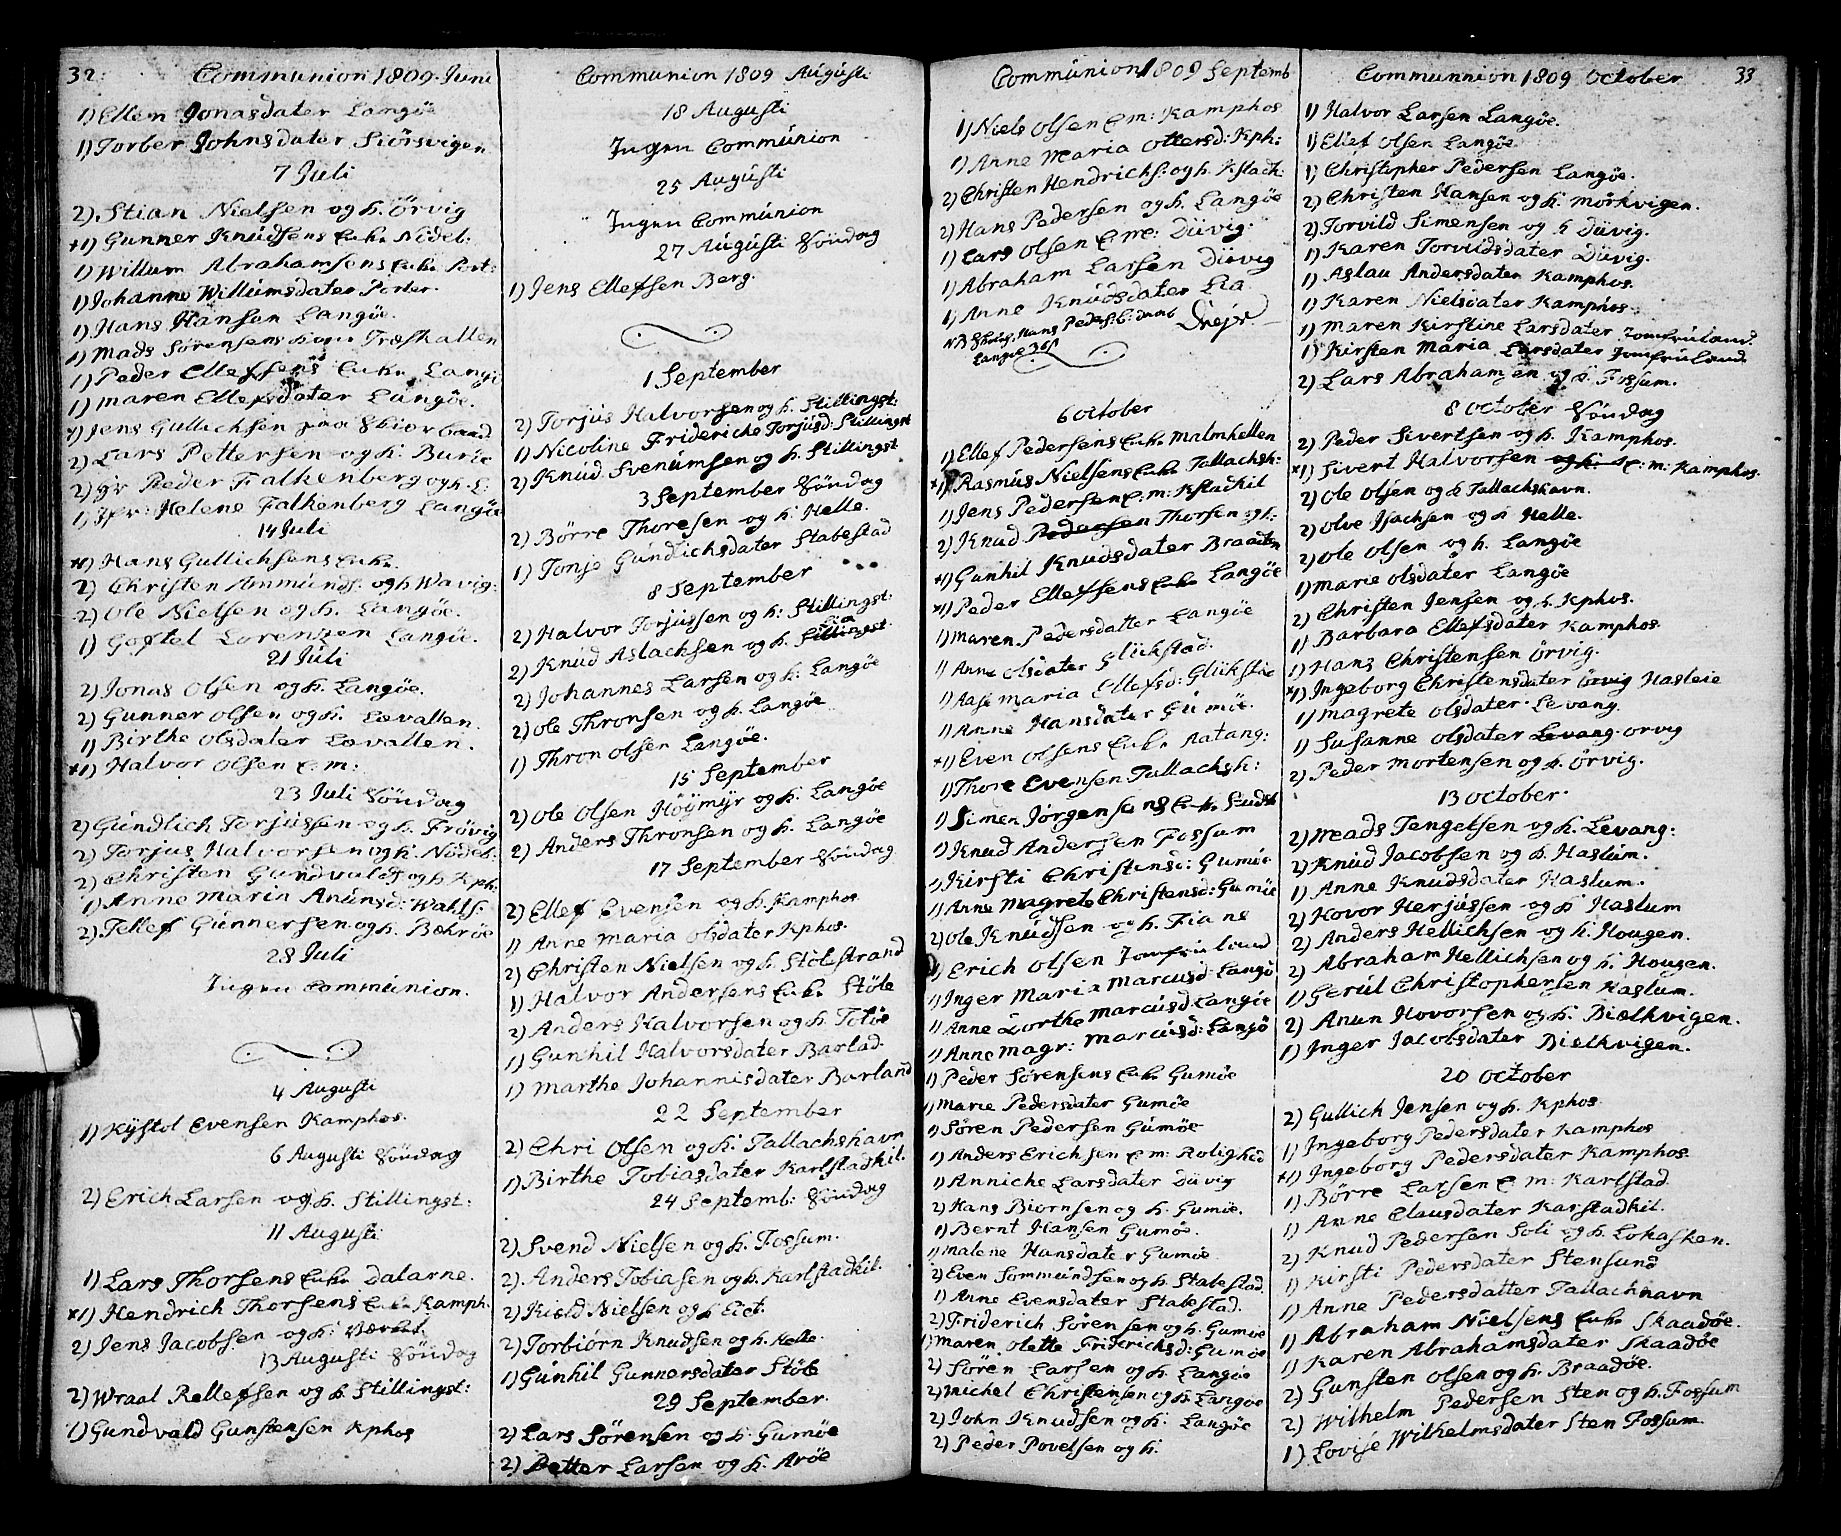 32. Communion 1809. Juni
1) Ellen Jonasdater Langöe
1) Torber Johnsdater Siörsvigen
7 Juli
2) Stian Nielsen og h. Örvig
*1) Gunner Knudsens Enke Nideb:
1) Willum Abrahamsens Enke Port:
1) Johanne Willumsdater Porter.
1) Hans Hansen Langöe.
1) Mads Sörensens kone Træskallen
1) Peder Ellefsens Enke Langö
1) Maren Ellefsdater Langöe.
*1) Jens Gullichsen paa Skiorband
2) Lars Pettersen og h: Buröe
2) Hr Peder Falkenberg og h. L:
1) Jfr: Helene Falkenberg Langöe
14 Juli
*1) Hans Gullichsens Enke.
2) Christen Ammunds: og h Wavig:
2) Ole Nielsen og h. Langöe.
1) Goftel Lorentzen Langöe.
21 Juli
2) Jonas Olsen og h. Langöe.
2) Gunner Olsen og h. Lövallen.
1) Birthe Olsdater Lövallen.
*1) Halvor Olsen E. m:
23 Juli Söndag
2) Gundlich Torjussen og h. Frövig
2) Torjus Halvorsen og h. Nideb:
2) Christen Gundvalds og h. Kph:
1) Anne Maria Anunsd: Wahls:
2) Tellef Gunnersen og h. Bæröe
28 Juli
Ingen Communion.
4 Augusti
1) Kystol Evensen Kamphos.
6 Augusti Söndag
2) Erich Larsen og h. Stillingst:
11 Augusti
1) Lars Thorsens Enke Dalarne.
*1) Hendrich Thorsens Enke Kamph.
2) Jens Jacobsen og h: Værket
13 Augusti Söndag
2) Wraal Rellefsen og h. Stillingst:
1) Gundvald Gunstensen Kphos
Communion 1809 Augusti
18 Augusti
Ingen Communion
25 Augusti
Ingen Communion
27 Augusti Söndag
1) Jens Ellefsen Berg.
1 September
2) Torjus Halvorsen og h. Stillingst:
1) Nicoline Fridericke Torjusd: Stillingst
2) Knud Svenumsen og h. Stillingst
3 September Söndag
2) Börre Thoresen og h: Helle.
1) Tonje Gundlichsdater Stabestad
8 September
2) Halvor Torjussen og h: Stillingst:
2) Knud Aslachsen og h. Stillingst.
2) Johannes Larsen og h: Langöe
2) Ole Thronsen og h. Langöe
1) Thron Olsen Langöe.
15 September
2) Ole Olsen Höymyr og h. Langöe
2) Anders Thronsen og h. Langöe
17 September Söndag
2) Ellef Evensen og h. Kamphos
1) Anne Maria Olsdater Kphos.
2) Christen Nielsen og h. Stölestrand
1) Halvor Andersens Enke Stöle
2) Anders Halvorsen og h. Töloe
1) Gunhil Halvorsdater Barlad.
1) Marthe Johannisdater Barland
22 September
2) Chri Olsen og h: Tallachshavn
1) Birthe Tobiasdater Karlstadkil.
24 Septemb: Söndag
2) Svend Nielsen og h. Fossum.
2) Anders Tobiasen og h. Karlstadkil.
2) Kield Nielsen og h Eiet.
2) Torbiörn Knudsen og h. Helle
1) Gunhil Gunnersdater Stöle
29 September
2) Lars Sörensen og h: Gumöe
2) Petter Larsen og h. Aröe
Communion 1809 Septemb
1) Niels Olsen E m: Kamphos
1) Anne Maria Ottersd: Kph:
2) Christen Hendrichs: og h. Kstadk:
2) Hans Pedersen og h. Langöe
1) Lars Olsen E. m: Düvig:
1) Abraham Larsen Düvig
1) Anne Knudsdater Lia
6 October
1) Ellef Pedersens Enke Malmhellen
*1) Rasmus Nielsens Enke Tallachsh:
1) Jens Pedersen E. m: Kstadkil
2) Knud Pedersen Thorsen og h:
*1) Gunhil Knudsdater Braaten
*1) Peder Ellefsens Enke Langöe
1) Maren Pedersdatter Langöe
1) Anne Olsdater Glükstad.
1) Aase Maria Ellefsd: Glükstad
1) Anne Hansdater Gümöe.
*1) Even Olsens Enke Aatang:
1) Thore Evensen Tallachsh:
1) Simen Jörgensens E. h. Sudst
1) Knud Andersen Fossum
1) Kirsti Christensd: Gumöe
1) Anne Magrete Christensd: Gumöe
2) Ole Knudsen og h. Fiane
1) Erich Olsen Jomfruland
1) Inger Maria Marcusd: Langö
1) Anne Dorthe Marcusd Langöe
1) Anne Magr: Marcusd: Langö
1) Peder Sörensens Enke Gumöe
1) Marie Pedersdater Gumöe
1) Sören Pedersen Gumöe
1) Anders Erichsen E m: Rolighed
1) Anniche Larsdater Düvig
2) Hans Biornsen og h. Gumöe.
1) Bernt Hansen Gumöe.
1) Malene Hansdater Gumöe
2) Even Sommundsen og h. Stabestad.
1) Anne Evensdater Stabestad.
2) Friderich Sörensen og h. Gumöe
1) Maren Olette Friderichsd: Gumöe
2) Sören Larsen og h. Langöe
2) Michel Christensen og h. Langöe
2) John Knudsen og h. Langöe
2) Peder Povelsen og h.
Communnion 1809 October 33
1) Halvor Larsen Langöe.
1) Ellef Olsen Langöe
1) Christopher Pedersen Langöe.
2) Christen Hansen og h: Mörkvigen.
2) Torvild Simensen og h Düvig.
1) Karen Torvildsdater Düvig.
1) Aslau Andersdater Kamphos.
1) Karen Nielsdater Kamphos
1) Maren Kirstine Larsdater Jomfruland.
1) Kirsten Maria Larsdater Jomfruland.
2) Lars Abrahamsen og h. Fossum.
8 October Söndag
2) Peder Sivertsen og h. Kamphos.
*1) Sivert Halvorsen og h. E: m: Kamphos.
2) Ole Olsen og h Tallachshavn.
2) Olve Isachsen og h Helle.
2) Ole Olsen og h. Langöe
1) Marie Olsdater Langöe
2) Christen Jensen og h. Kphos.
1) Barbara Ellefsdater Kamphos
1) Hans Christensen Örvig.
*1) Ingeborg Christensdater Örvig Hasleie
1) Magrete Olsdater Levang.
1) Susanne Olsdater Levang. Orvig
2) Peder Mortensen og h. Örvig.
13 October
2) Mads Tengelsen og h. Levang:
2) Knud Jacobsen og h. Haslum.
1) Anne Knudsdater Haslum.
2) Hovor Herjussen og h Haslum
2) Anders Hellichsen og h. Hougen.
2) Abraham Hellichsen og h. Hougen.
1) Gerul Christophersen Haslum.
2) Anun Hovorsen og h: Bielkvigen.
1) Inger Jacobsdater Bielkvigen.
20 October
2) Gullich Jensen og h. Kphos.
1) Ingeborg Pedersdater Kamphos
*1) Ingeborg Pedersdater Kamphos.
1) Börre Larsen E. m: Karlstad
1) Anne Clausdater Karstadkil.
2) Knud Pedersen Soli og h. Lokasken.
1) Kirsti Pedersdater Stensund
1) Anne Pedersdatter Tallachhavn
1) Abraham Nielsens Enke Skaadöe.
1) Karen Abrahamsdater Skaadöe
2) Gunsten Olsen og h. Braadöe.
2) Wilhelm Pedersen Sten og h. Fossum
1) Lovise Wilhelmsdater Sten Fossum.